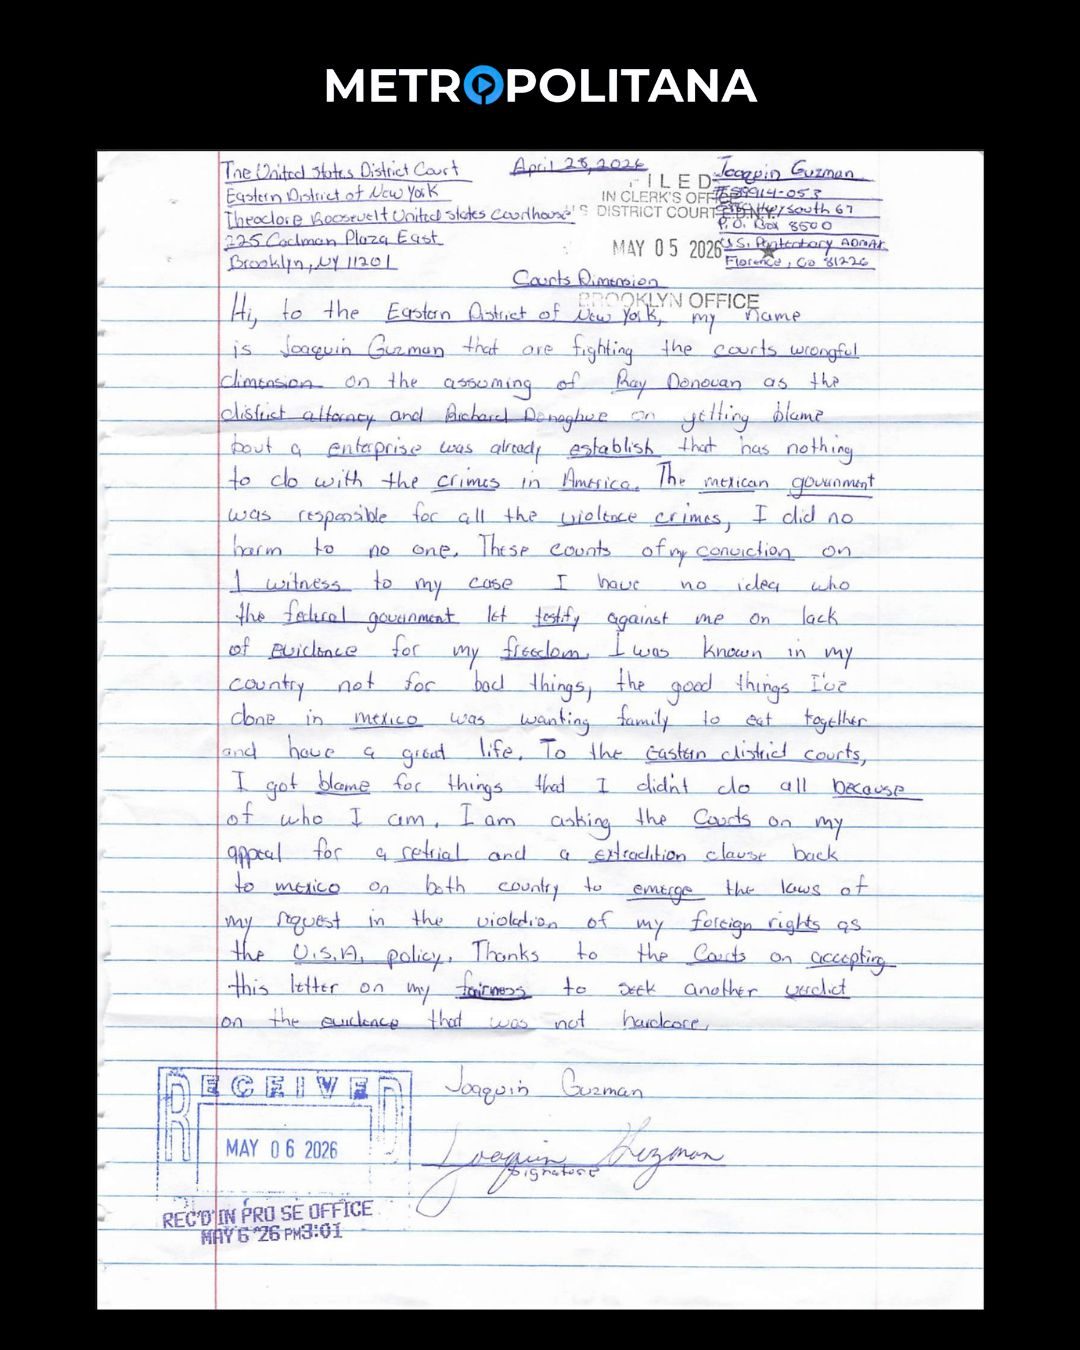 METROPOLITANA
The United States District Court
Eastern District of New York
Theodore Roosevelt United States Courthouse
225 Cadman Plaza East
Brooklyn, NY 11201
April 28, 2026
Joaquin Guzman
P.O. Box 8500
Florence, Co 81226
FILED
IN CLERK'S OFFICE
DISTRICT COURT E.D.N.Y.
MAY 05 2026
BROOKLYN OFFICE
Courts Dimension
Hi, to the Eastern District of New York, my name
is Joaquin Guzman that are fighting the courts wrongful
dimension on the assuming of Ray Donovan as the
district attorney and Richard Donoghue on getting blame
bout a enterprise was already establish that has nothing
to do with the crimes in America. The mexican government
was responsible for all the violence crimes, I did no
harm to no one. These counts of my conviction on
1 witness to my case I have no idea who
the federal government let testify against me on lack
of evidence for my freedom. I was known in my
country not for bad things, the good things I've
done in mexico was wanting family to eat together
and have a great life. To the Eastern district courts,
I got blame for things that I didn't do all because
of who I am. I am asking the Courts on my
appeal for a retrial and a extradition clause back
to mexico on both country to emerge the laws of
my request in the violation of my foreign rights as
the U.S.A. policy. Thanks to the Courts on accepting
this letter on my fairness to seek another verdict
on the evidence that was not hardcore.
Joaquin Guzman
Joaquin Guzman
Signature
RECEIVED
MAY 06 2026
REC'D IN PRO SE OFFICE
MAY 6 '26 PM3:01